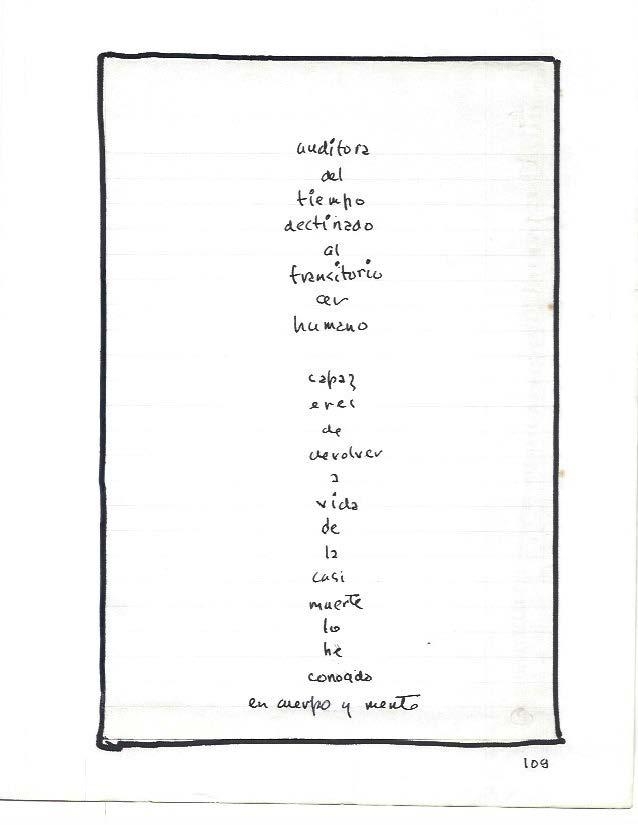 auditora
del
tiempo
destinado
al
transitorio
ser
humano
capaz
eres
de
devolver
a
vida
de
la
casi
muerte
lo
he
conocido
en cuerpo y mente
109